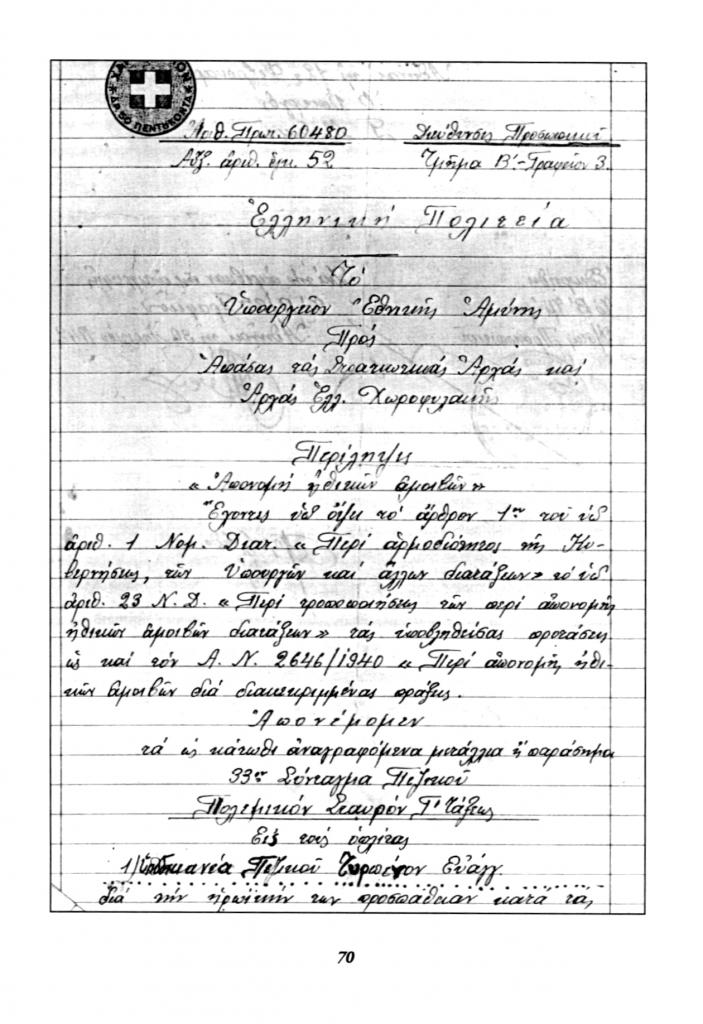 ΔΡ. 50 ΠΕΝΤΗΚΟΝΤΑ
Ἀριθ. Πρωτ. 60480 Διεύθυνσις Προσωπικοῦ
Αὐξ. ἀριθ. ἐγκ. 52 Τμῆμα Β'.- Γραφεῖον 3.
Ἑλληνική Πολιτεία
Τό
Ὑπουργεῖον Ἐθνικῆς Ἀμύνης
Πρός
Ἁπάσας τάς Στρατιωτικάς Ἀρχάς καί
Ἀρχάς Ἑλλ. Χωροφυλακῆς
Περίληψις
«Ἀπονομή ἠθικῶν ἀμοιβῶν»
Ἔχοντες ὑπ' ὄψει τό ἄρθρον 1ον τοῦ ὑπ'
ἀριθ. 1 Νομ. Διατ. «Περί ἁρμοδιότητος τῆς Κυ-
βερνήσεως, τῶν Ὑπουργῶν καί ἄλλων διατάξεων» τό ὑπ'
ἀριθ. 23 Ν.Δ. «Περί τροποποιήσεως τῶν περί ἀπονομῆς
ἠθικῶν ἀμοιβῶν διατάξεων» τάς ὑποβληθείσας προτάσεις
ὡς καί τόν Α.Ν. 2646/1940 «Περί ἀπονομῆς ἠθι-
κῶν ἀμοιβῶν διά διακεκριμμένας πράξεις.
Ἀπονέμομεν
τά ὡς κάτωθι ἀναγραφόμενα μετάλλια ἤ παράσημα
33ον Σύνταγμα Πεζικοῦ
Πολεμικόν Σταυρόν Γ' Τάξεως
Εἰς τούς ὁπλίτας
1) Πεζικοῦ Εὐάγγ.
διά τήν ἡρωϊκήν των προσπάθειαν κατά τάς
70